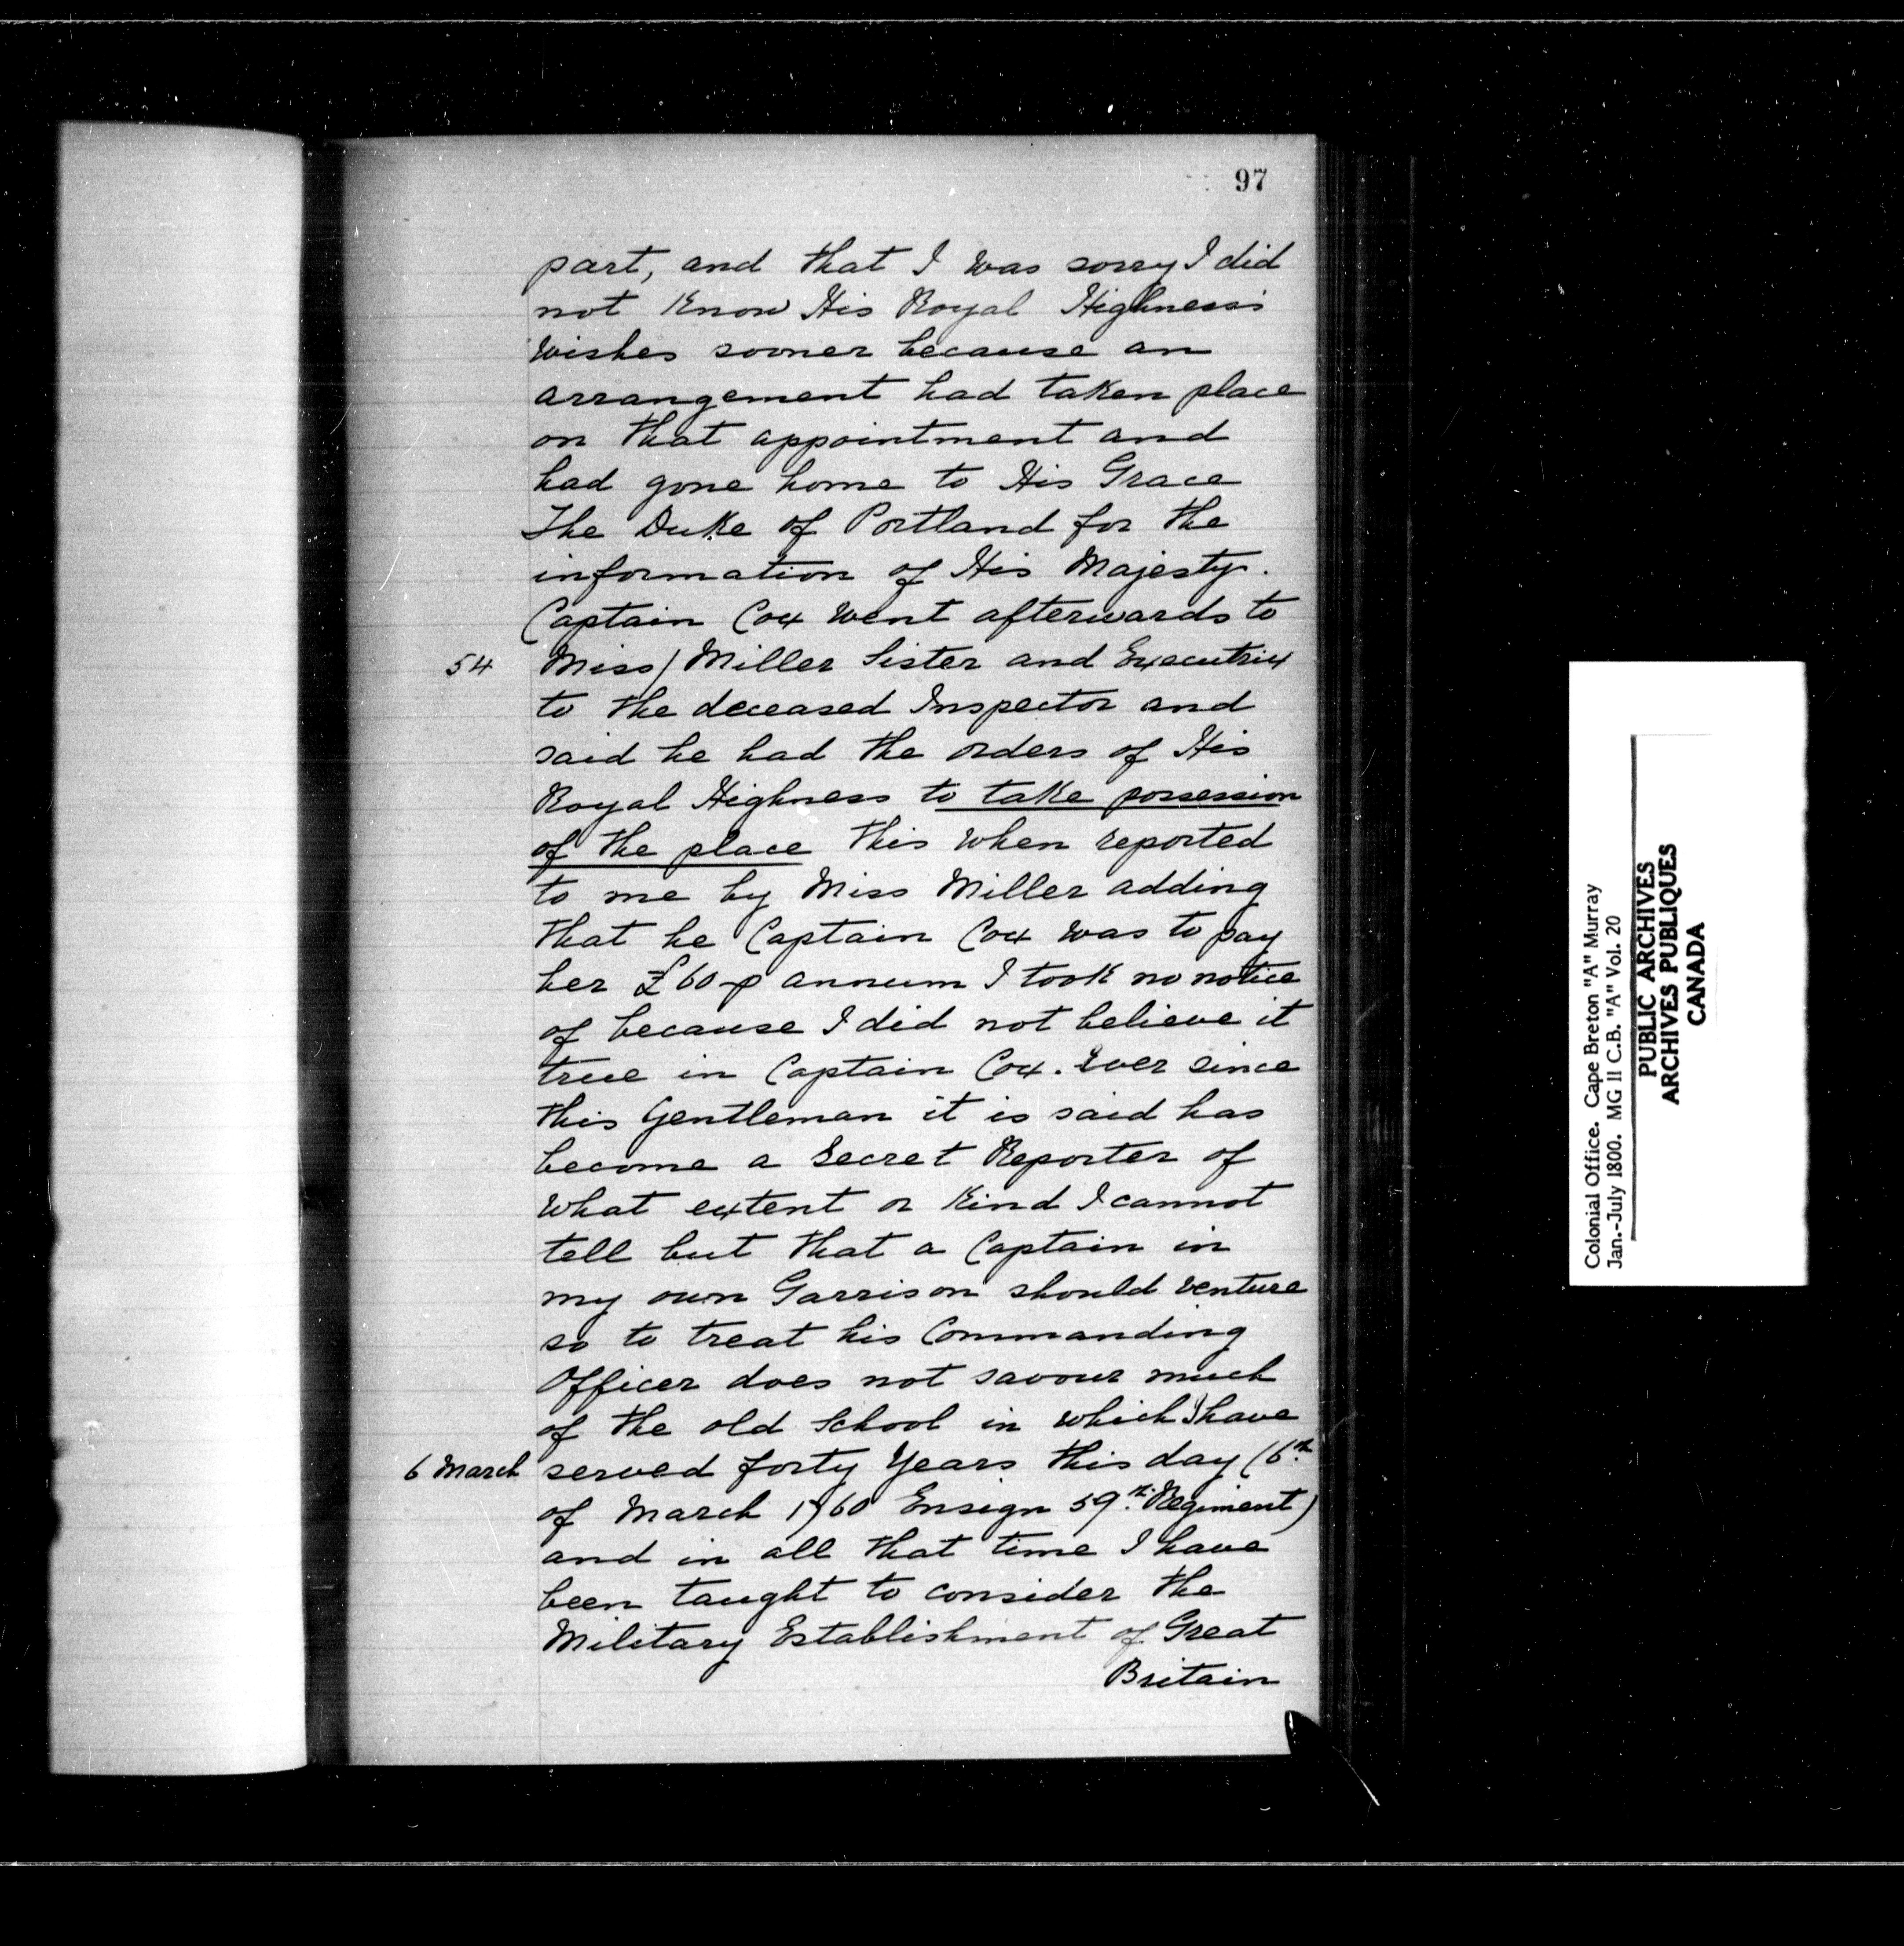 97
part, and that I was sorry I did
not Know His Royal Highness's
Wishes sooner because an
arrangement had taken place
on that appointment and
had gone home to His Grace
The Duke of Portland for the
information of His Majesty.
Captain Cox went afterwards to
54 Miss/ Miller Sister and Executrix
to the deceased Inspector and
said he had the orders of His
Royal Highness to take possession
of the place this when reported
to me by Miss Miller adding
that he Captain Cox was to pay
her £60 p annum I took no notice
of because I did not believe it
true in Captain Cox. Ever since
this Gentleman it is said has
become a Secret Reporter of
What extent or Kind I cannot
tell but that a Captain in
my own Garrison should venture
so to treat his Commanding
Officer does not savour much
of the old School in which I have
6 March served forty Years this day (6th
of March 1760 Ensign 59th Regiment)
and in all that time I have
been taught to consider the
Military Establishment of Great
Britain
Colonial Office. Cape Breton "A" Murray
Jan.-July 1800. MG 11 C.B. "A" Vol. 20
PUBLIC ARCHIVES
ARCHIVES PUBLIQUES
CANADA